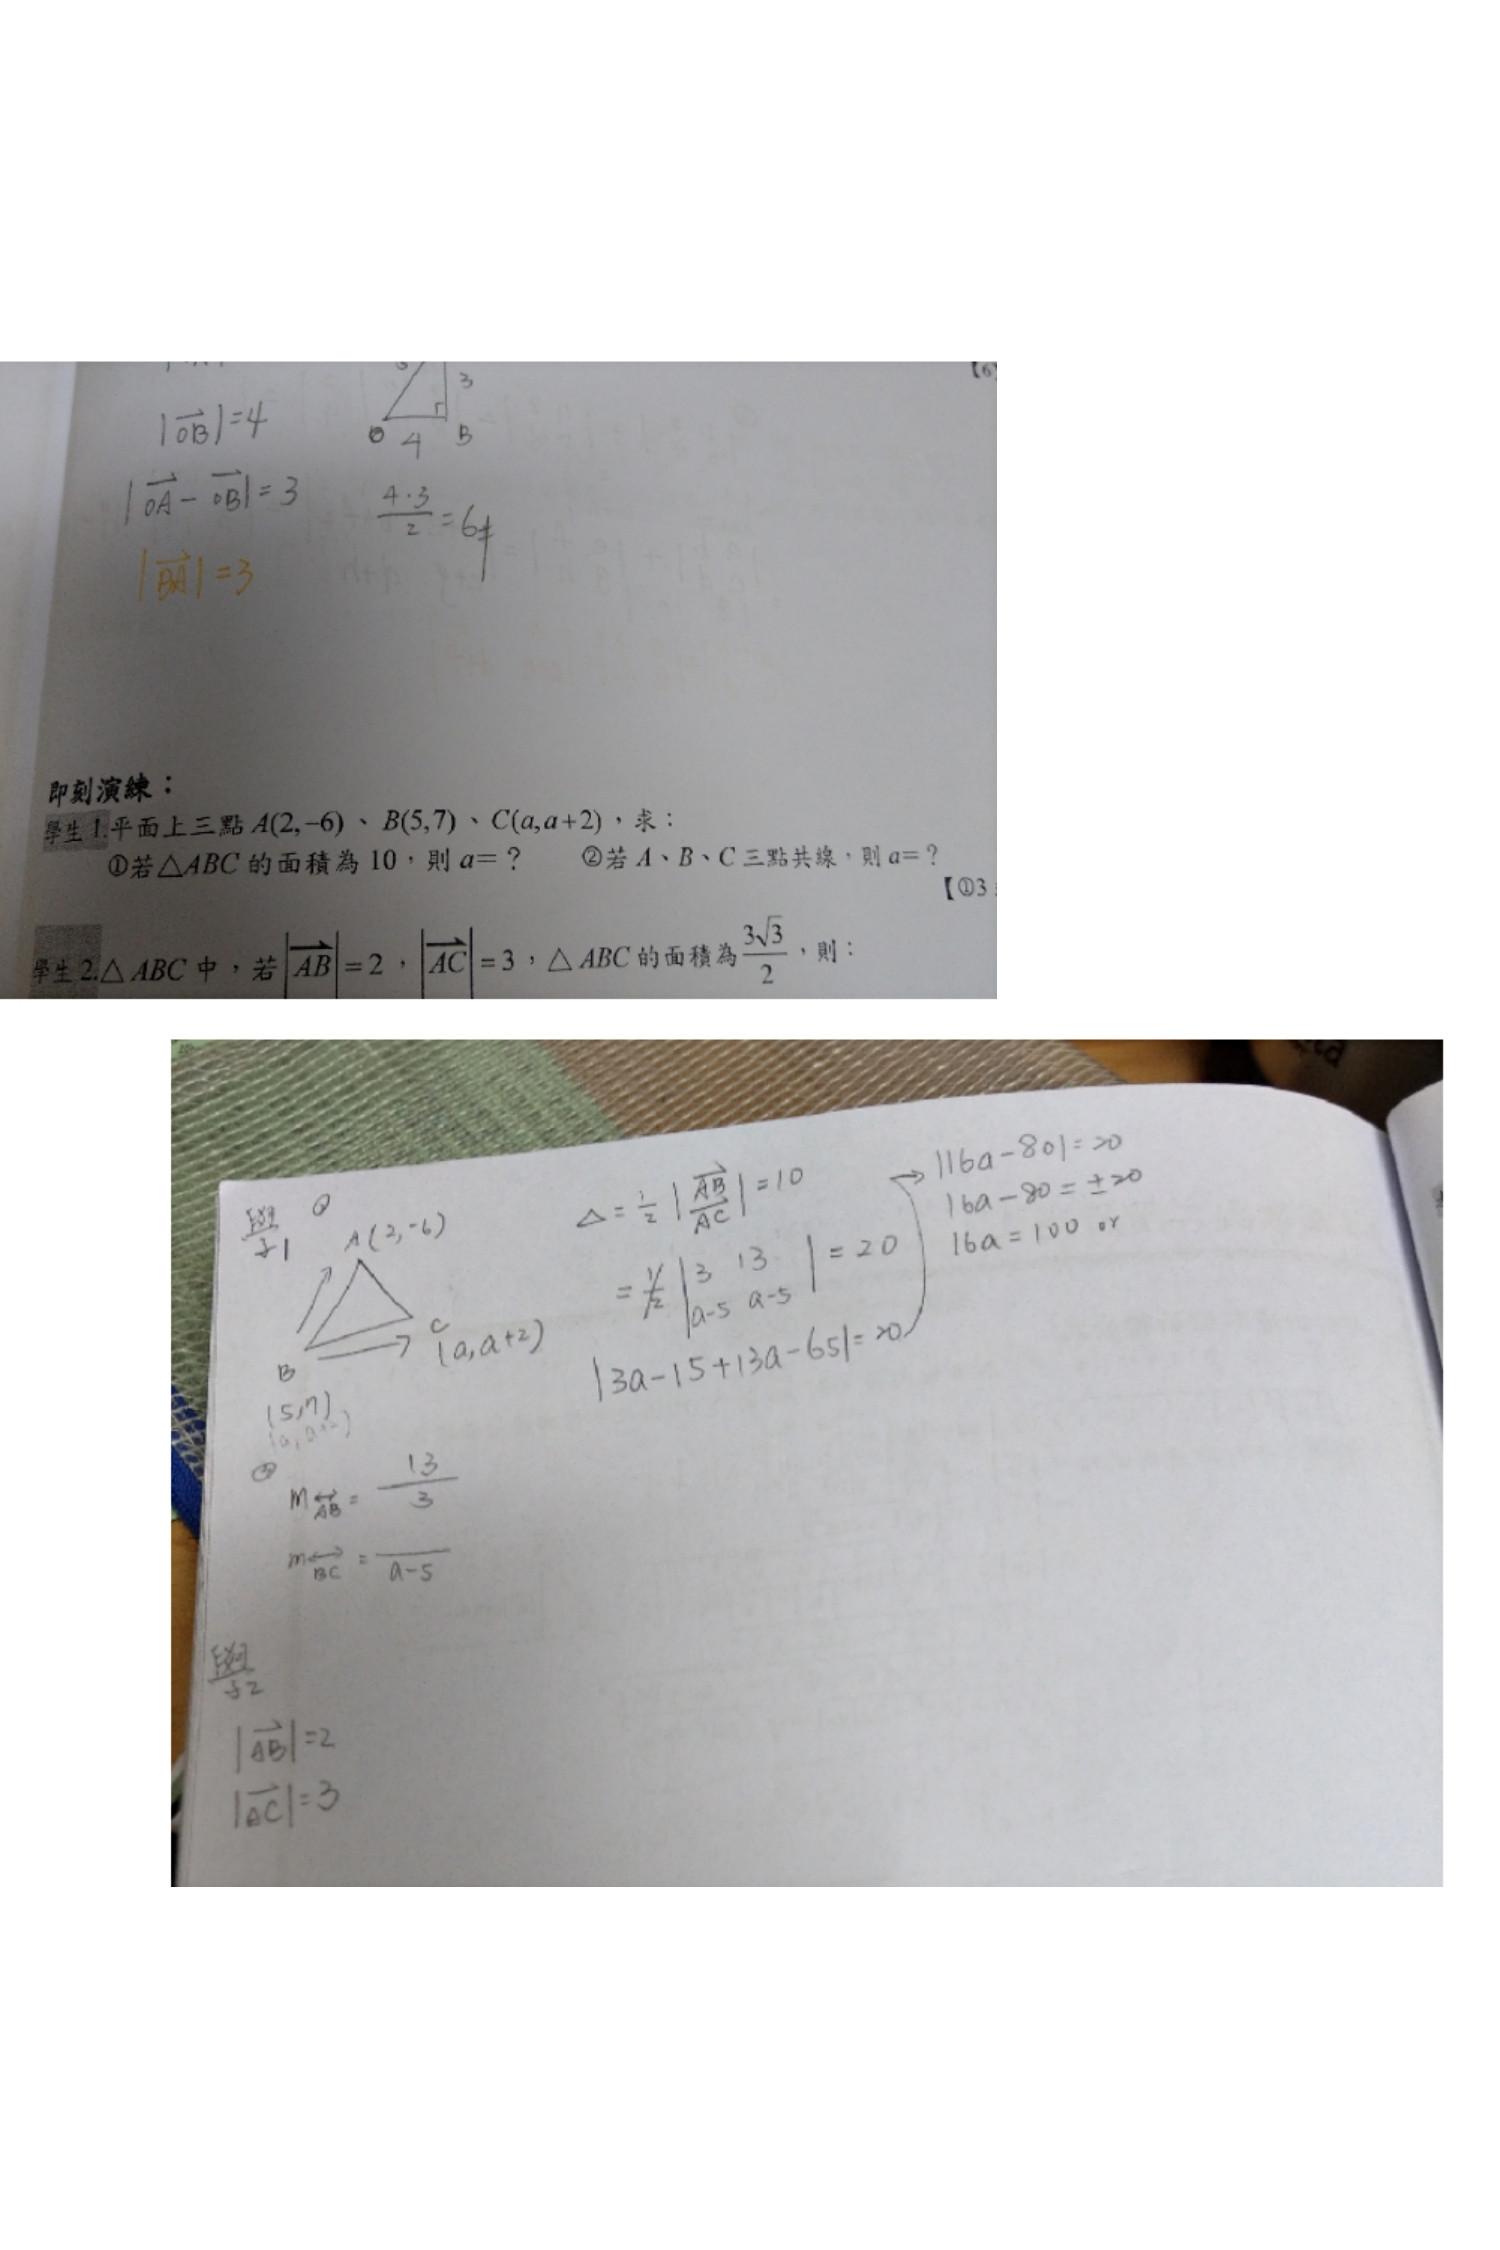 |OB|=4
3
O 4 B
|OA - OB| = 3
4·3/2 = 6
|BA| = 3
【6
即刻演練：
學生1.平面上三點 A(2,−6)、B(5,7)、C(a,a+2)，求：
①若△ABC 的面積為 10，則 a=？ ②若 A、B、C 三點共線，則 a=？
【①3
學生2.△ABC 中，若 |AB|=2，|AC|=3，△ABC 的面積為 3√3/2，則：
學生1
A(2,-6)
C
(a, a+2)
B
(5,7)
(a, a+2)
△ = 1/2 | AB / AC | = 10
= 1/2 | 3 13 / a-5 a-5 | = 20
|3a-15+13a-65| = 20
→ |16a-80| = 20
16a-80 = ±20
16a = 100 or
②
m AB = 13/3
m BC = /a-5
學生2
|AB|=2
|AC|=3